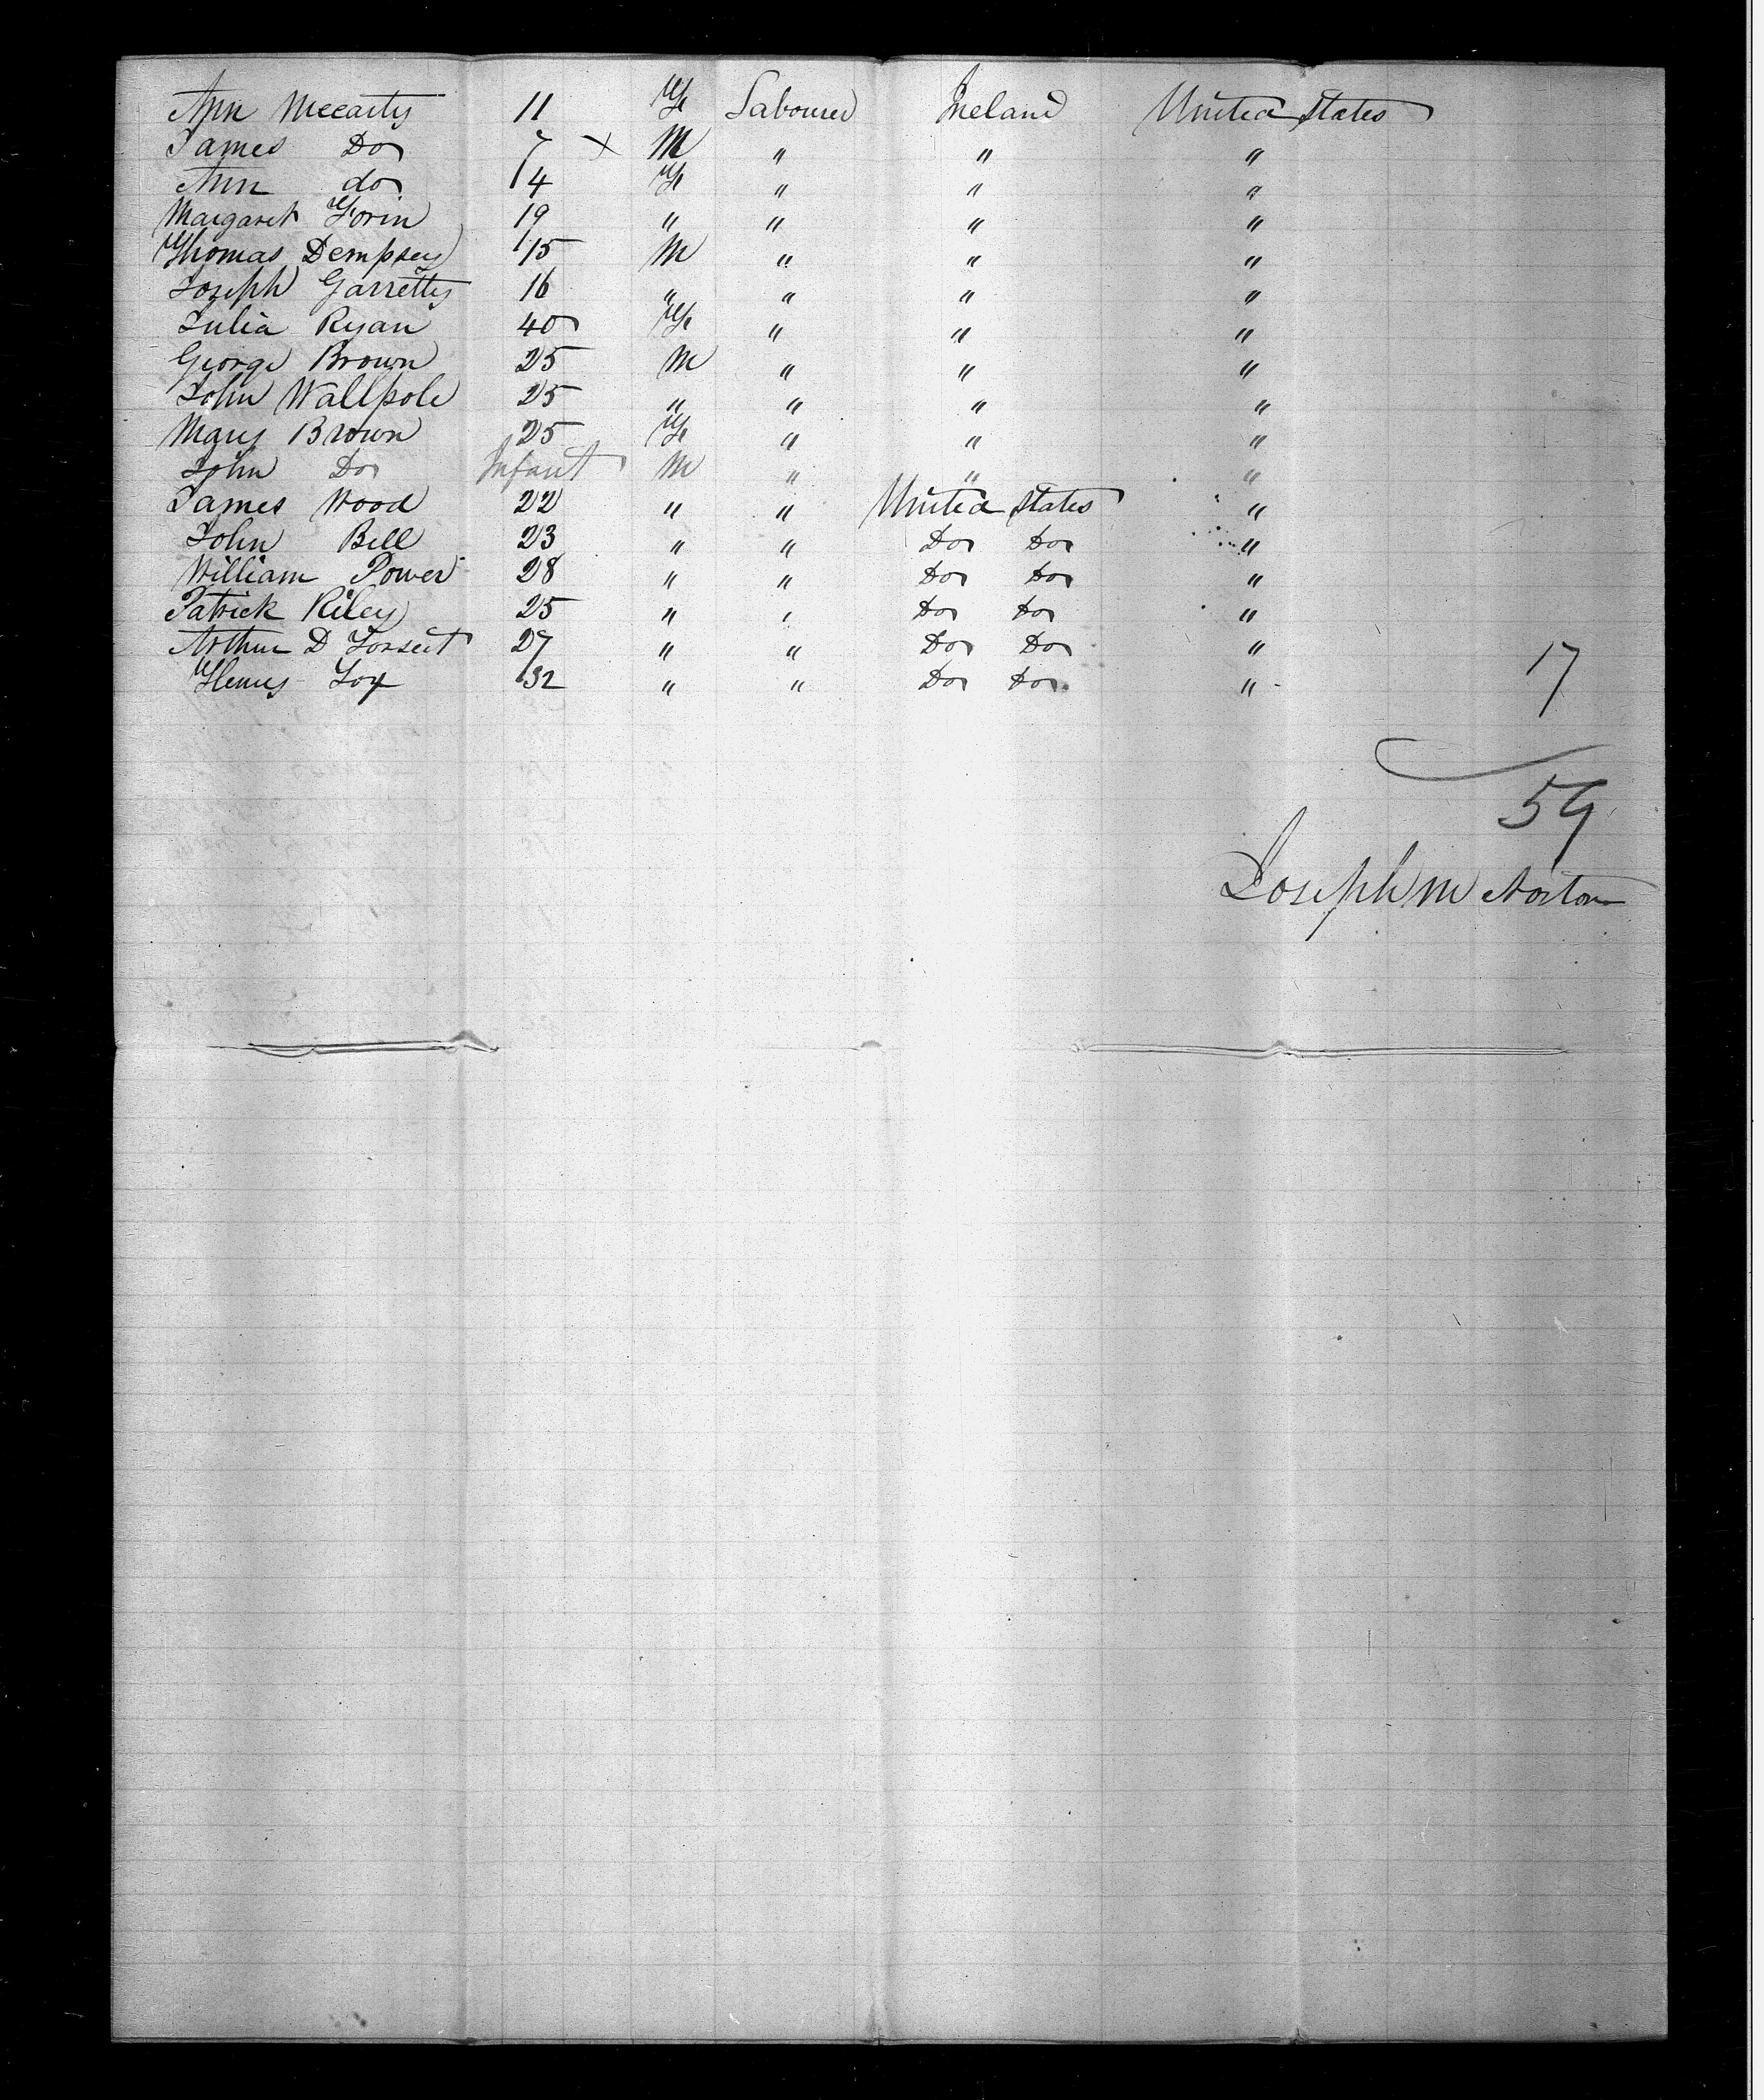 Ann Mccarty 11 F Labourer Ireland United States
James Do 7 x M " " "
Ann do 4 F " " "
Margaret Forin 19 " " " "
Thomas Dempsey 15 M " " "
Joseph Garretty 16 " " " "
Julia Ryan 40 F " " "
George Brown 25 M " " "
John Wallpole 25 " " " "
Mary Brown 25 F " " "
John Do Infant M " " "
James Wood 22 " " United States "
John Bell 23 " " Do Do "
William Power 28 " " Do Do "
Patrick Riley 25 " " Do Do "
Arthur D 27 " " Do Do "
Henry Fox 32 " " Do Do "
17
59
Joseph M Norton